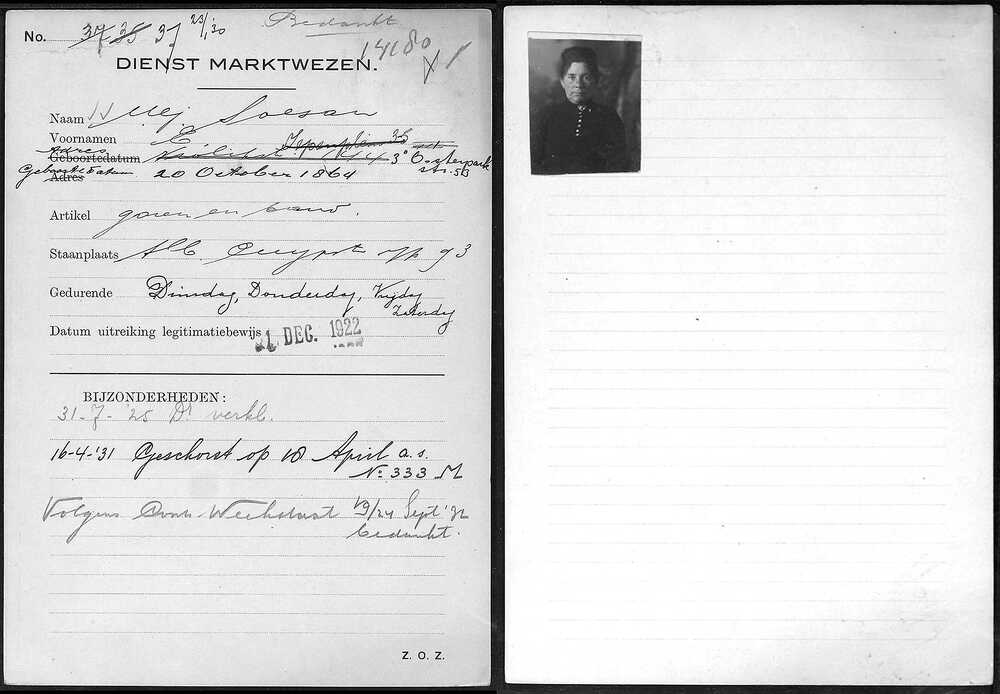 No. 37 35 37 23/1 30 Bedankt
14180
DIENST MARKTWEZEN.
Naam Mej Soesan
Voornamen E
Adres Iepenplein 35
Geboortedatum 144 3° Oosterpark
Geboortedatum Adres 20 October 1864 str. 53
Artikel garen en band.
Staanplaats Alb. Cuypstr 93
Gedurende Dinsdag, Donderdag, Vrijdag
Zaterdag
Datum uitreiking legitimatiebewijs 21 DEC. 1922
BIJZONDERHEDEN:
31-7-'25 Dr verkl.
16-4-'31 Geschorst op 18 April a.s.
No 333 M
Volgens Weekstaat 19/24 Sept '32
bedankt.
Z. O. Z.